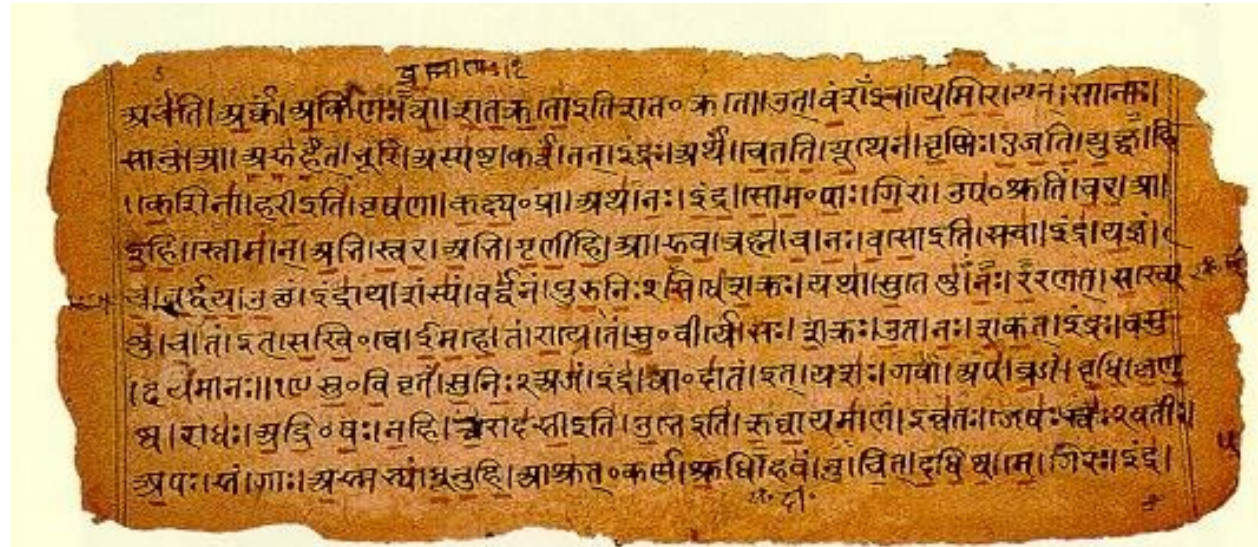 ब्रह्माणः।१
अर्चंति।अर्कं।अर्किणः।त्वा।शतक्रतोऽइतिशत०क्रतो।उत्।वंशंऽइव।येमिरे।यत्।सानोः।
सानुं।आ।अरुहत्।भूरि।अस्पष्ट।कर्त्वं।तत्।इंद्रः।अर्थं।चेतति।यूथेन।वृष्णिः।एजति।युक्ष्व।हि
।केशिना।हरीऽइति।वृषणा।कक्ष्य०प्रा।अथ।नः।इंद्र।सोम०पाः।गिरां।उप०श्रुतिं।चर।आ।
इहि।स्तोमान्।अभि।स्वर।अभि।गृणीहि।आ।रुव।ब्रह्म।च।नः।वसोऽइति।सचा।इंद्र।यज्ञं।
च।वर्द्धय।उक्थं।इंद्राय।शंस्यं।वर्द्धनं।पुरुनिःऽसिधे।शक्रः।यथा।सुतेषु।नः।ररणत्।सख्ये
षु।च।तं।इत्।सखि०त्वे।ईमहे।तं।राये।तं।सु०वीर्ये।सः।शक्रः।उत।नः।शकत्।इंद्रः।वसु
।दयमानः॥१९ सु०विवृतं।सुनिःऽअजं।इंद्र।त्वा०दातं।इत्।यशः।गवां।अप।व्रजं।वृधि।कृणु
ष्व।राधः।अद्रि०वः।नहि।त्वा।रोदसीऽइति।उभेऽइति।ऋघायमाणं।इन्वतः।जेषः।स्वःऽवतीः।
अपः।सं।गाः।अस्मभ्यं।धूनुहि।आश्रुत्०कर्ण।श्रुधि।हवं।नु।चित्।दधिष्व।मे।गिरः।इंद्र।